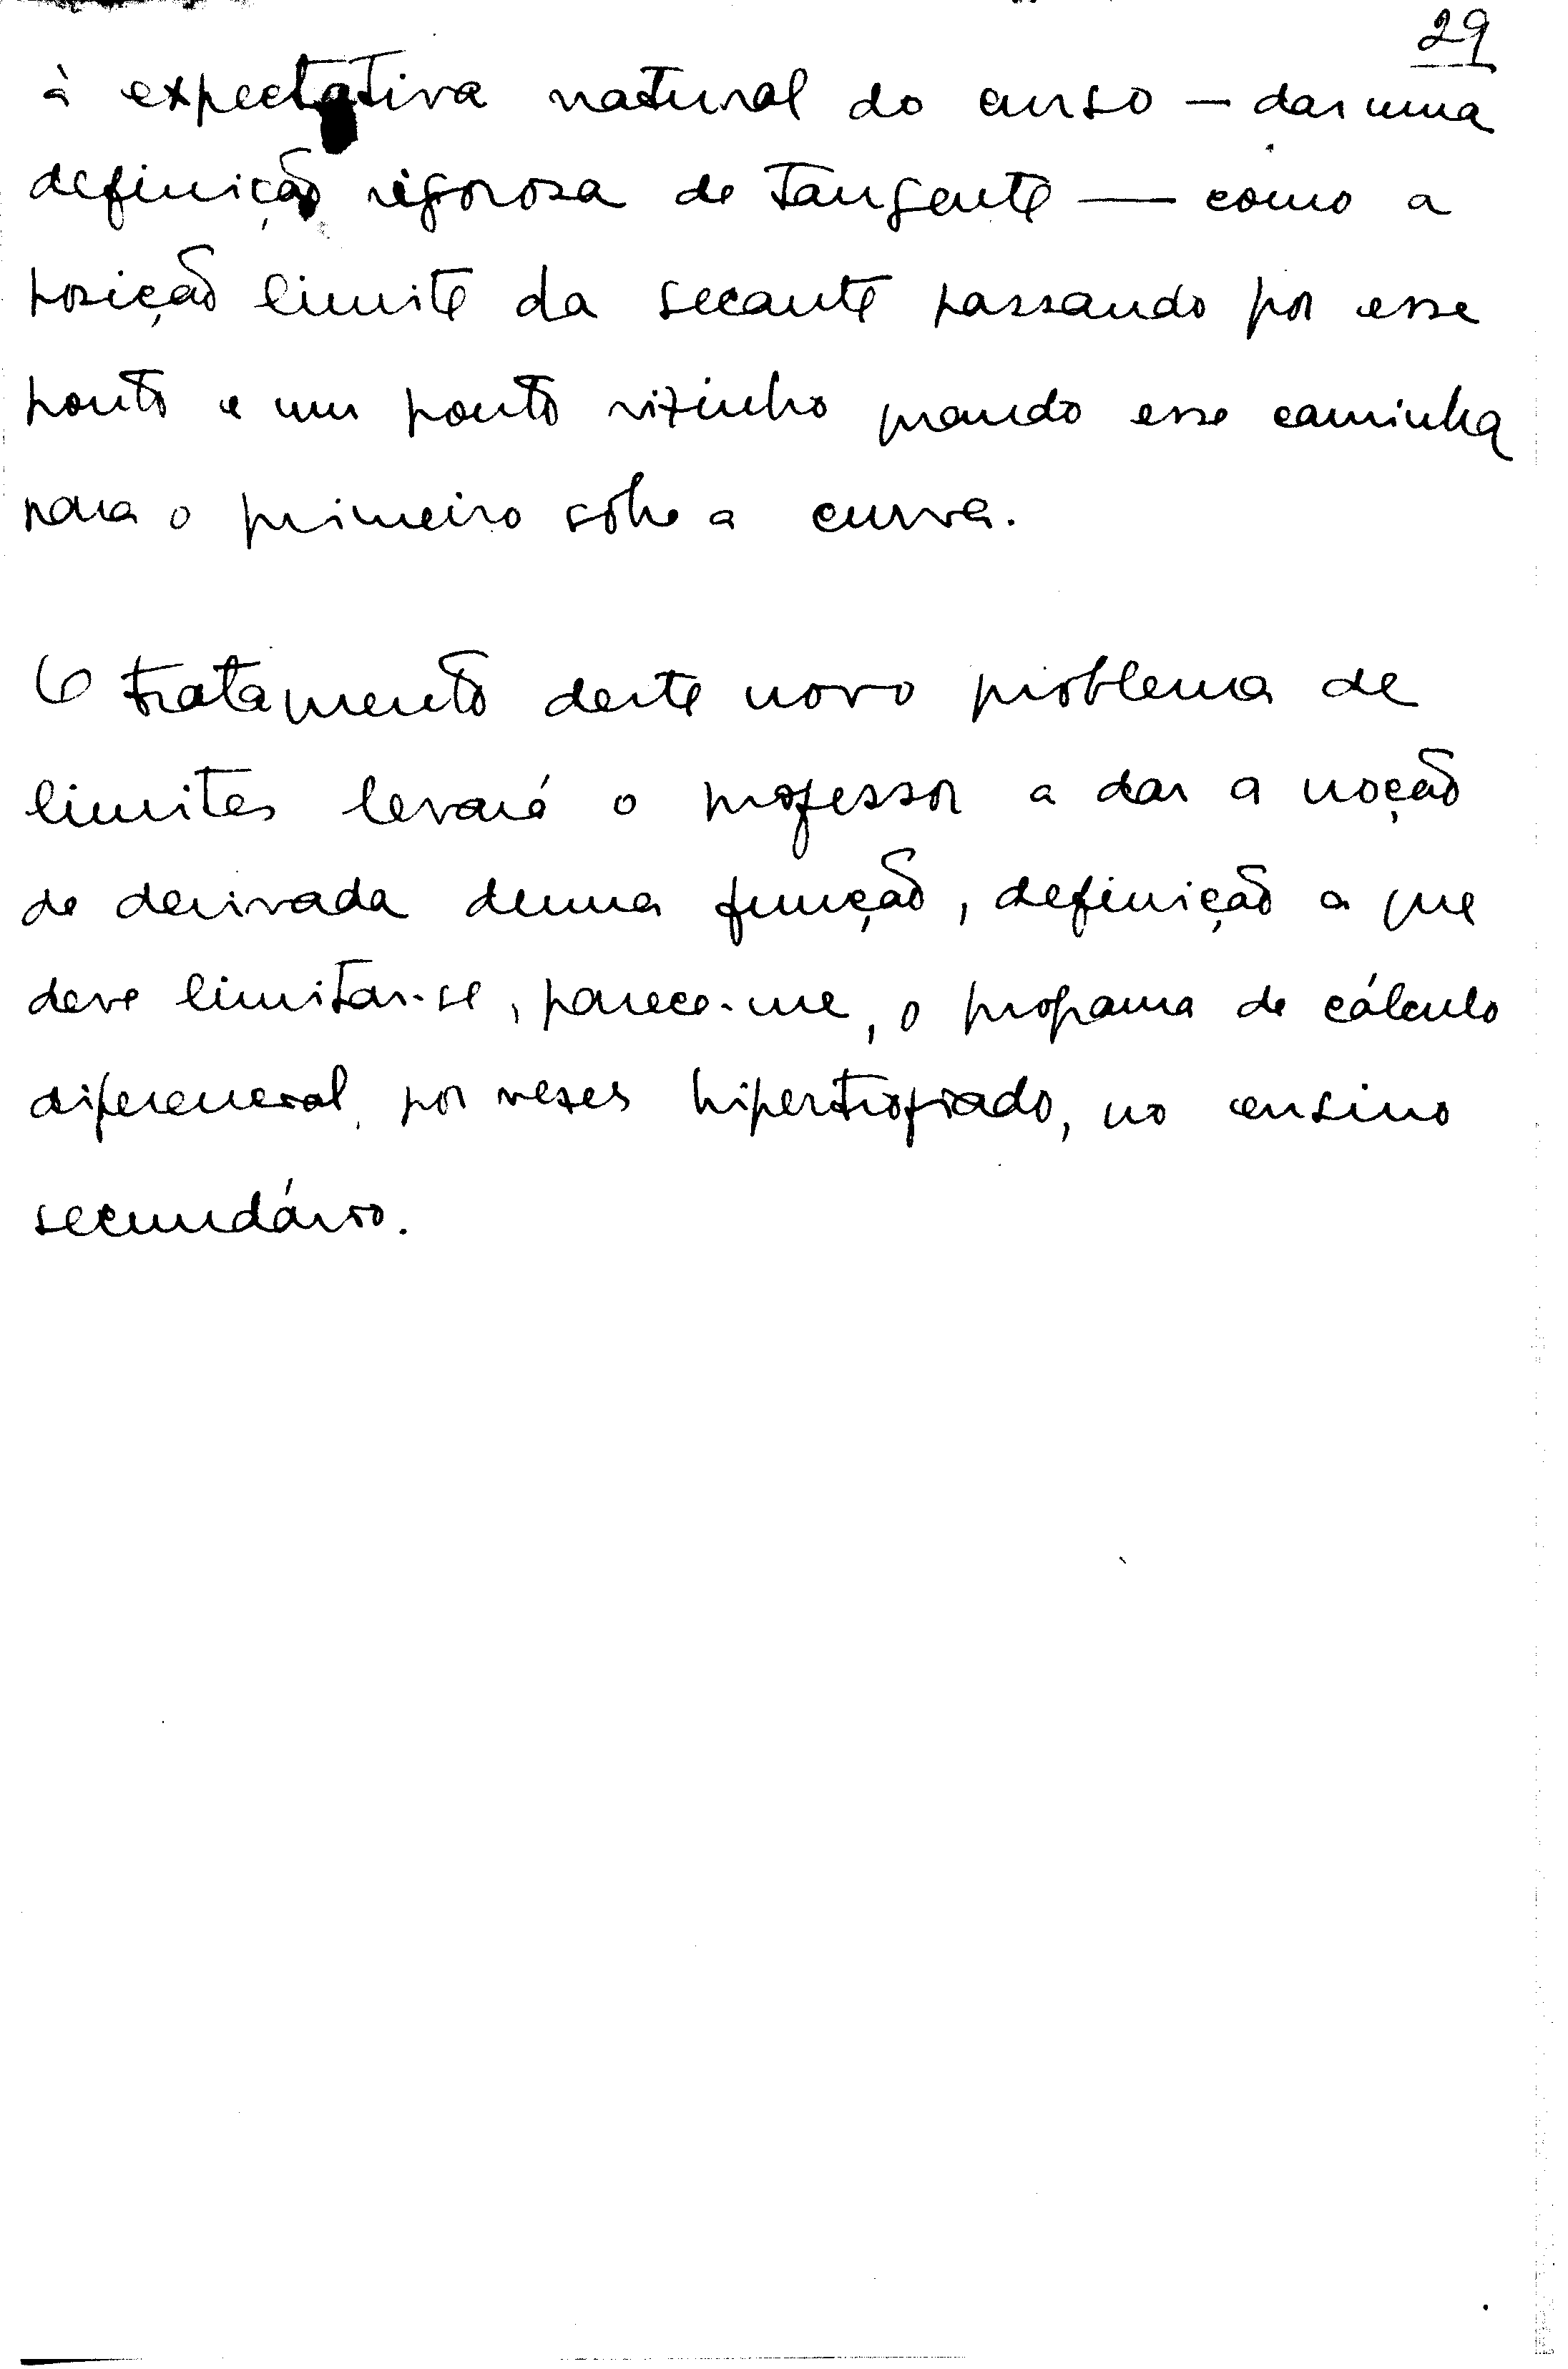 29
à expectativa natural do curso — dar uma
definição rigorosa de tangente — como a
posição limite da secante passando por esse
ponto e um ponto vizinho quando esse caminha
para o primeiro sôbre a curva.
O tratamento deste novo problema de
limites levará o professor a dar a noção
de derivada duma função, definição a que
deve limitar-se, parece-me, o programa de cálculo
diferencial, por vezes hipertrofiado, no ensino
secundário.